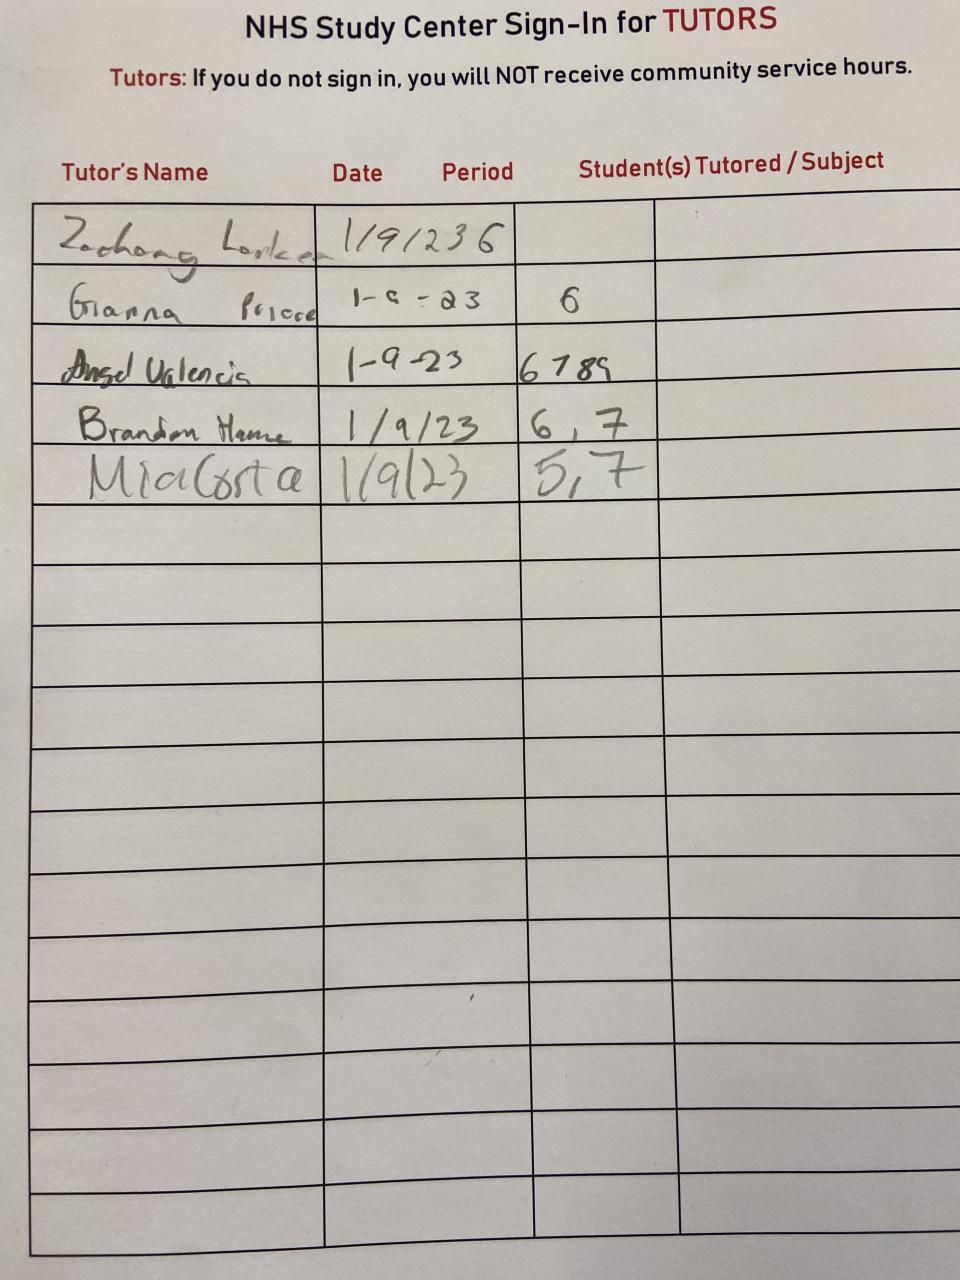 NHS Study Center Sign-In for TUTORS
Tutors: If you do not sign in, you will NOT receive community service hours.
Tutor's Name Date Period Student(s) Tutored / Subject
1/9/23 6
Gianna 1-9-23 6
Angel Valencia 1-9-23 6 7 8 9
Brandon 1/9/23 6, 7
Mia Costa 1/9/23 5, 7